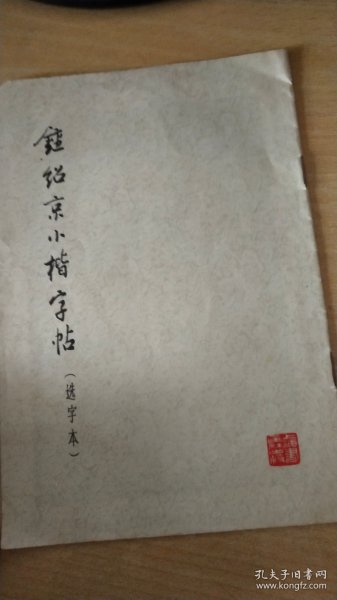 鍾绍京小楷字帖
(选字本)
孔夫子旧书网
www.kongfz.com